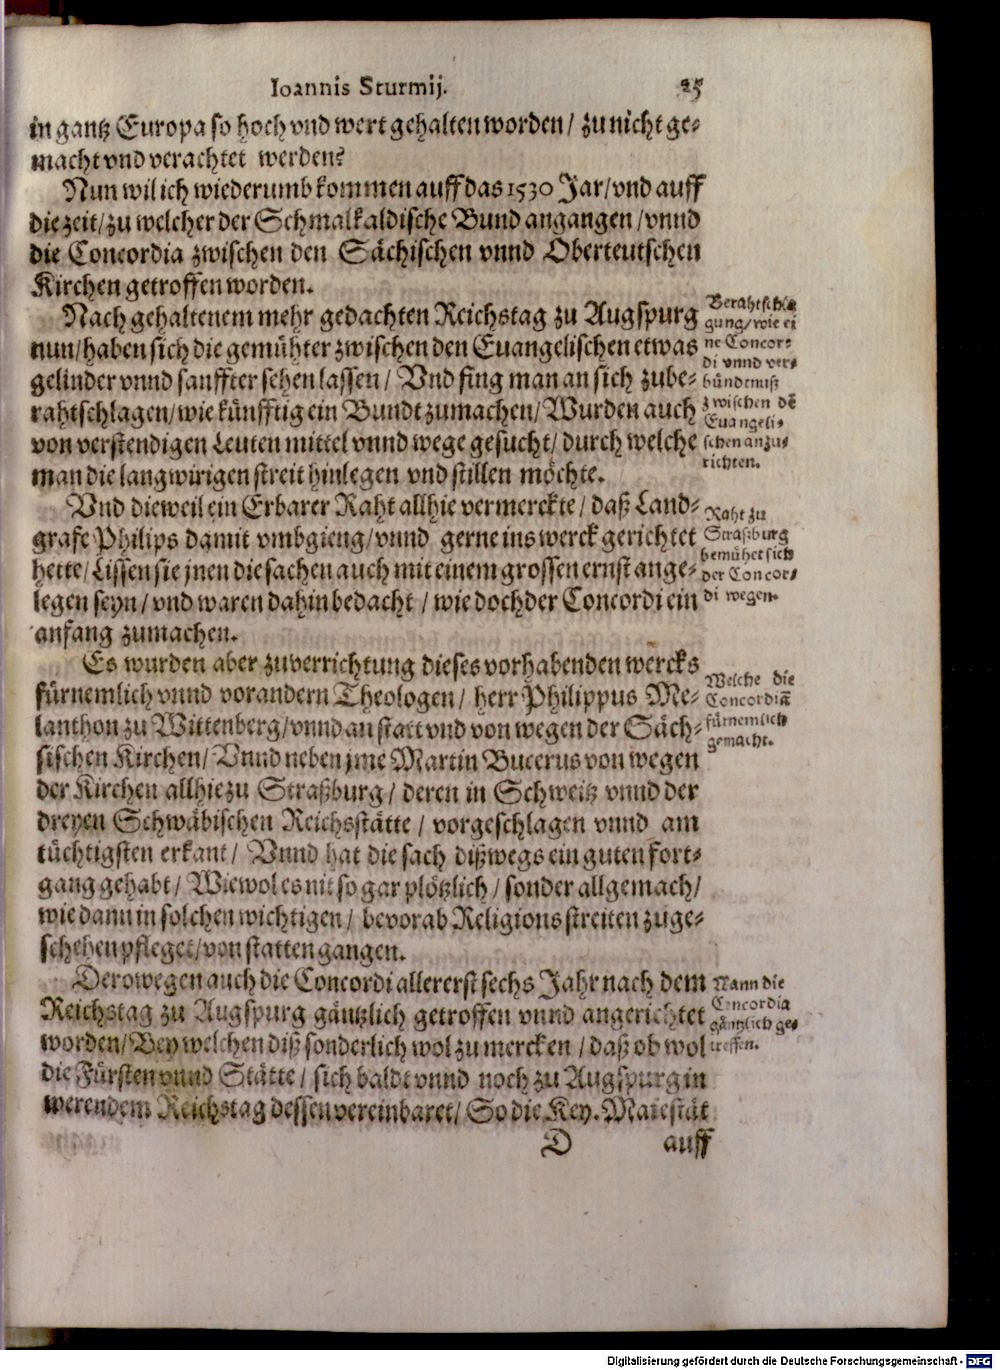 Ioannis Sturmij. 25
in gantz Europa so hoch vnd wert gehalten worden / zu nicht ge-
macht vnd verachtet werden?
Nun wil ich wiederumb kommen auff das 1530 Jar / vnd auff
die zeit / zu welcher der Schmalkaldische Bund angangen / vnnd
die Concordia zwischen den Sächischen vnnd Oberteutschen
Kirchen getroffen worden.
Nach gehaltenem mehr gedachten Reichstag zu Augspurg
nun / haben sich die gemühter zwischen den Euangelischen etwas
gelinder vnnd sanffter sehen lassen / Vnd fing man an sich zube-
rahtschlagen / wie künfftig ein Bundt zumachen / Wurden auch
von verstendigen Leuten mittel vnnd wege gesucht / durch welche
man die langwirigen streit hinlegen vnd stillen möchte.
Berahtschla
gung / wie ei
ne Concor-
di vnnd ver-
bündtnuß
zwischen dē
Euangeli-
schen anzu-
richten.
Vnd dieweil ein Erbarer Raht allhie vermerckte / daß Land-
grafe Philips damit vmbgieng / vnnd gerne ins werck gerichtet
hette / Lissen sie jnen die sachen auch mit einem grossen ernst ange-
legen seyn / vnd waren dahin bedacht / wie doch der Concordi ein
anfang zumachen.
Raht zu
Straßburg
bemühet sich
der Concor-
di wegen.
Es wurden aber zuverrichtung dieses vorhabenden wercks
fürnemlich vnnd vor andern Theologen / herr Philippus Me-
lanthon zu Wittenberg / vnnd an statt vnd von wegen der Säch-
sischen Kirchen / Vnnd neben jme Martin Bucerus von wegen
der Kirchen allhie zu Straßburg / deren in Schweitz vnnd der
dreyen Schwäbischen Reichsstätte / vorgeschlagen vnnd am
tüchtigsten erkant / Vnnd hat die sach dißwegs ein guten fort-
gang gehabt / Wiewol es nit so gar plötzlich / sonder allgemach /
wie dann in solchen wichtigen / bevorab Religions streiten zuge-
schehen pfleget / von statten gangen.
Welche die
Concordiā
fürnemlich
gemacht.
Derowegen auch die Concordi allererst sechs Jahr nach dem
Reichstag zu Augspurg gäntzlich getroffen vnnd angerichtet
worden / Bey welchen diß sonderlich wol zu mercken / daß ob wol
die Fürsten vnnd Stätte / sich baldt vnnd noch zu Augspurg in
werendem Reichstag dessen vereinbaret / So die Key. Maiestät
Wann die
Concordia
gäntzlich ge-
treffen.
D auff
Digitalisierung gefördert durch die Deutsche Forschungsgemeinschaft - DFG